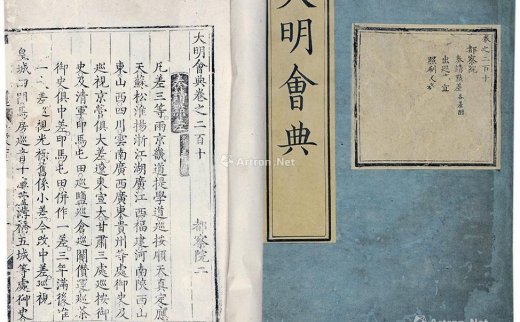 大明會典卷之二百十
都察院二
奏請點差
凡差三等兩京畿道提學道巡按順天真定應
天蘇松淮揚浙江湖廣江西福建河南陝西山
東山西四川雲南廣西廣東貴州等處御史及
巡視京營俱大差遼東宣大甘肅三處巡按御
史及清軍印馬屯田巡鹽巡倉巡關儹運巡茶
御史俱中差印馬屯田併作一差三年滿後准
一大差巡視光祿舊係小差今改中差巡視
皇城四門馬房巡青十庫蘆溝橋五城等處御史
大明會典
卷之二百十
都察院
奏請點差
出巡事宜
照刷文卷
Artron.Net
Artron.Net